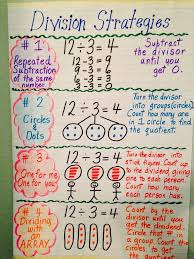 Division Strategies
# 1
Repeated
Subtraction
of the same
number
12 ÷ 3 = 4
12 - 3 = 9
9 - 3 = 6
6 - 3 = 3
3 - 3 = 0
Subtract
the divisor
until you
get 0.
# 2
Circles
&
Dots
12 ÷ 3 = 4
Turn the divisor
into groups (circles)
Count how many are
in 1 circle to find
the quotient.
# 3
One for me
One for you!
12 ÷ 3 = 4
Turn divisor into
stick people. Count up
to the dividend giving
one to each person.
Count how many
each person has.
# 4
Dividing
with an
ARRAY
12 ÷ 3 = 4
Count by the
divisor until you
get the dividend.
Circle that #
in a group. Count
the circles to
get the Quotient